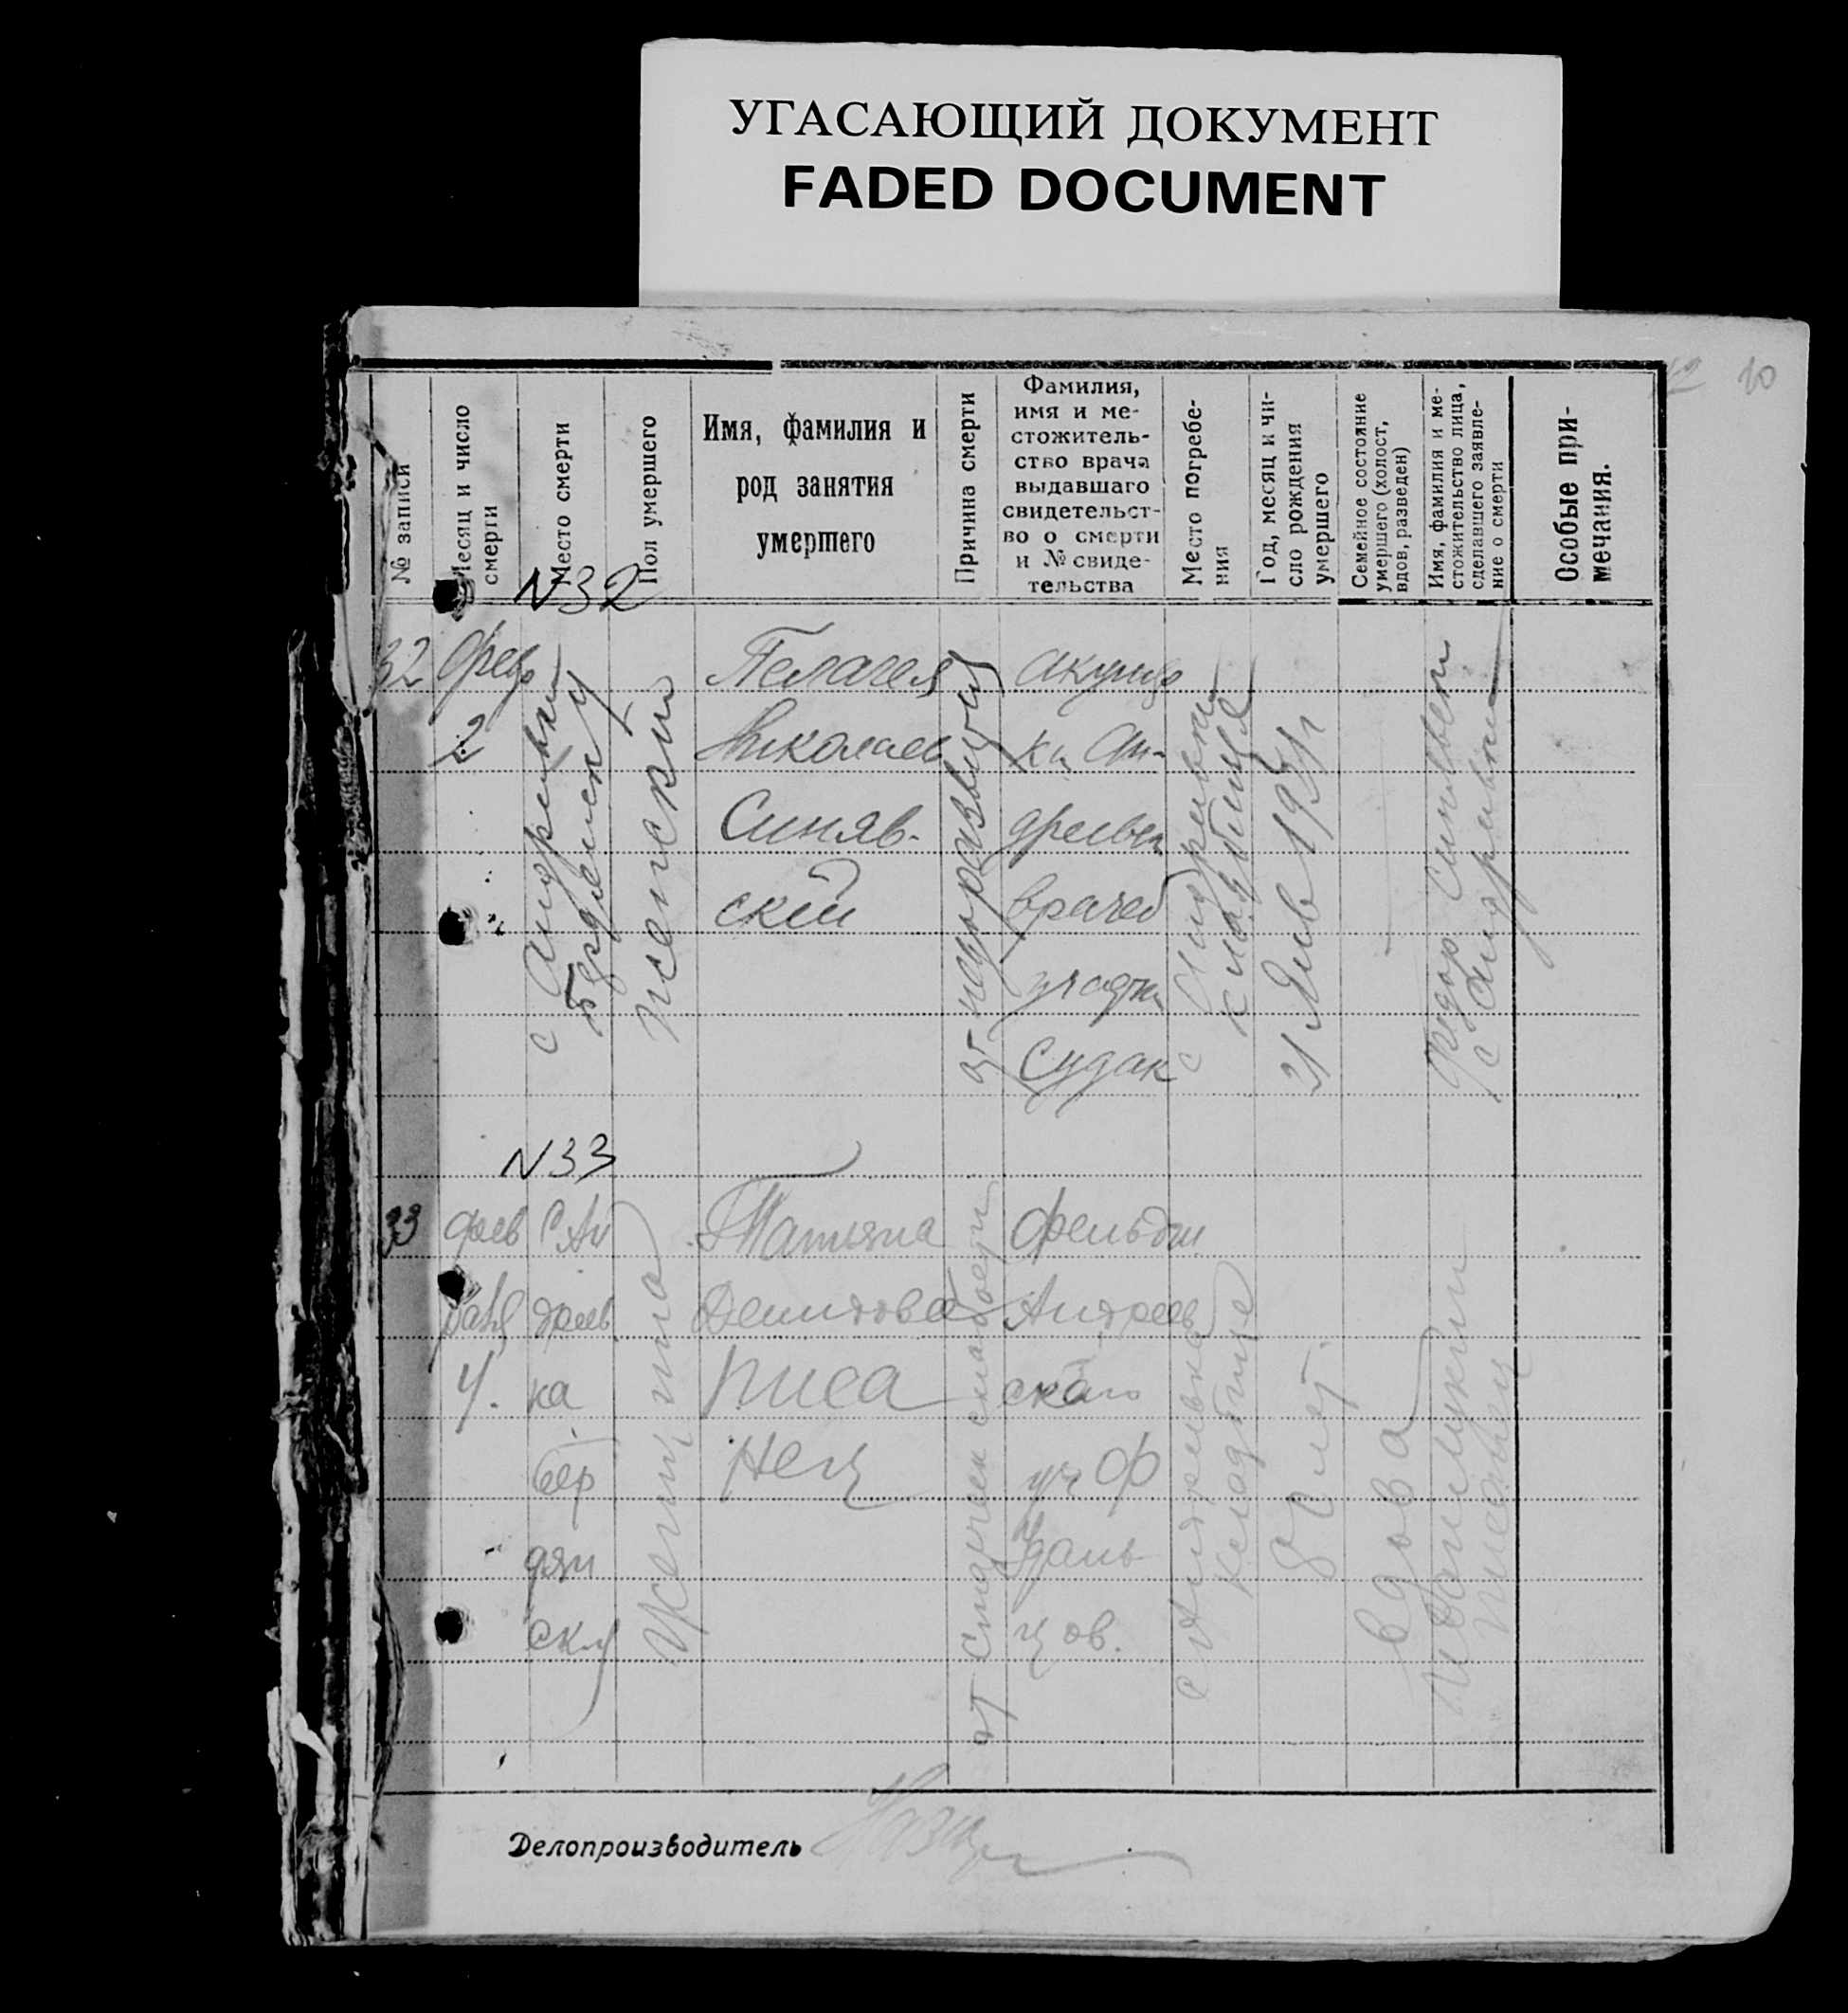 УГАСАЮЩИЙ ДОКУМЕНТ
FADED DOCUMENT
10
№ записи
Месяц и число
смерти
Место смерти
Пол умершего
Имя, фамилия и
род занятия
умершего
Причина смерти
Фамилия,
имя и ме-
стожитель-
ство врача
выдавшаго
свидетельст-
во о смерти
и № свиде-
тельства
Место погребе-
ния
Год, месяц и чи-
сло рождения
умершего
Семейное состояние
умершего (холост,
вдов, разведен)
Имя, фамилия и ме-
стожительство лица,
сделавшего заявле-
ние о смерти
Особые при-
мечания.
N32
32
Февр
2
с Андреевки
Бердянск
женский
Пелагея
Николаев
Синяв-
ский
от недоразвит
акушер
ка Ан-
дреевс
врачеб
участка
Судак
с Андреевки
кладбище
21 Янв 193
Федор Синявский
с Андреевки
N33
33
фев
раля
4.
С Ан
дреев
ка
бер
дян
ск
женщина
Татьяна
Демидовна
Писа
нец
от Старческ слабости
фельдш
Андреев
ского
уч Ф
Удаль
цов.
с Андреевка
кладбище
80 лет.
вдова
Писанец
Делопроизводитель